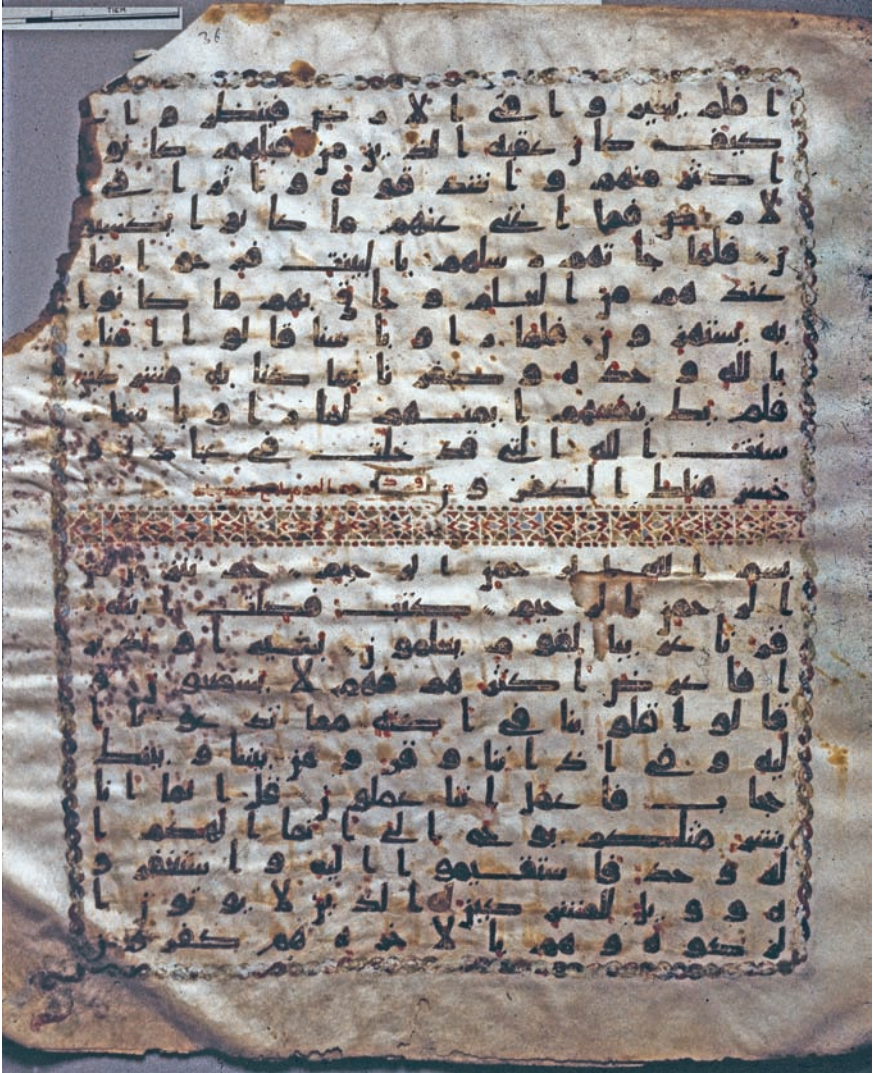 افلم يسيروا في الارض فينظروا
كيف كان عقبة الذين من قبلهم كانوا
اكثر منهم واشد قوة واثارا في
لارض فما اغنى عنهم ما كانوا يكسبو
ن فلما جاتهم رسلهم بالبينت فرحوا بما
عندهم من العلم وحاق بهم ما كانوا
به يستهزون فلما راوا باسنا قالوا امنا
بالله وحده وكفرنا بما كنا به مشركين
فلم يك ينفعهم ايمنهم لما راوا باسنا
سنت الله التي قد خلت في عباده و
خسر هنالك الكفرون
بسم الله الرحمن الرحيم حم تنزيل من
الرحمن الرحيم كتب فصلت ايته
قرانا عربيا لقوم يعلمون بشيرا ونذير
ا فاعرض اكثرهم فهم لا يسمعون و
قالوا قلوبنا في اكنة مما تدعونا ا
ليه وفي اذاننا وقر ومن بيننا وبينك
حجاب فاعمل اننا عملون قل انما انا
بشر مثلكم يوحى الي انما الهكم ا
له وحد فاستقيموا اليه واستغفرو
ه وويل للمشركين الذين لا يوتون ا
لزكوة وهم بالاخرة هم كفرون